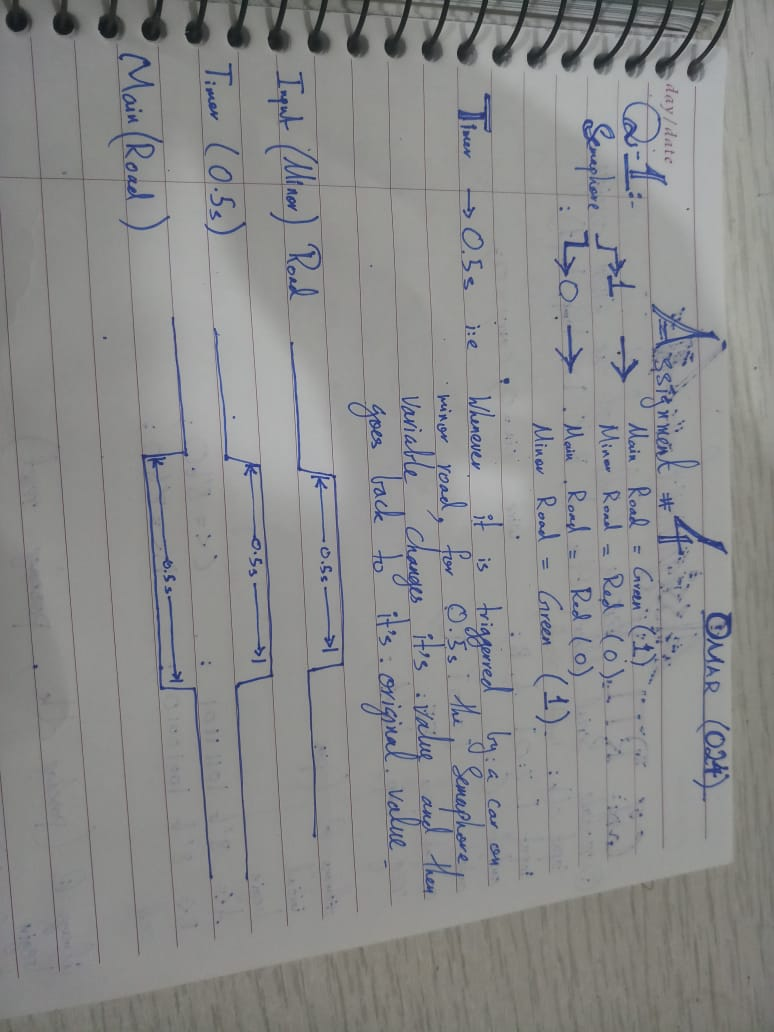 day/date
OMAR (024)
Assignment # 1
Q-1:-
Semaphore → 1 → Main Road = Green (1)
Minor Road = Red (0)
→ 0 → Main Road = Red (0)
Minor Road = Green (1)
Timer → 0.5s i:e Whenever it is triggerred by a car on
minor road, for 0.5s the Semaphore
variable changes it's value and then
goes back to it's original value
Input (Minor) Road 0.5s
Timer (0.5s) 0.5s
Main (Road) 0.5s